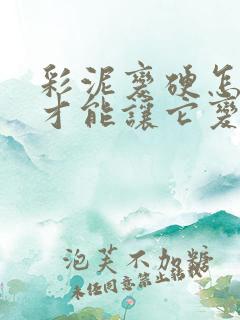 彩泥變硬怎
才能讓它變
泡芙不加糖
未经同意禁止转载